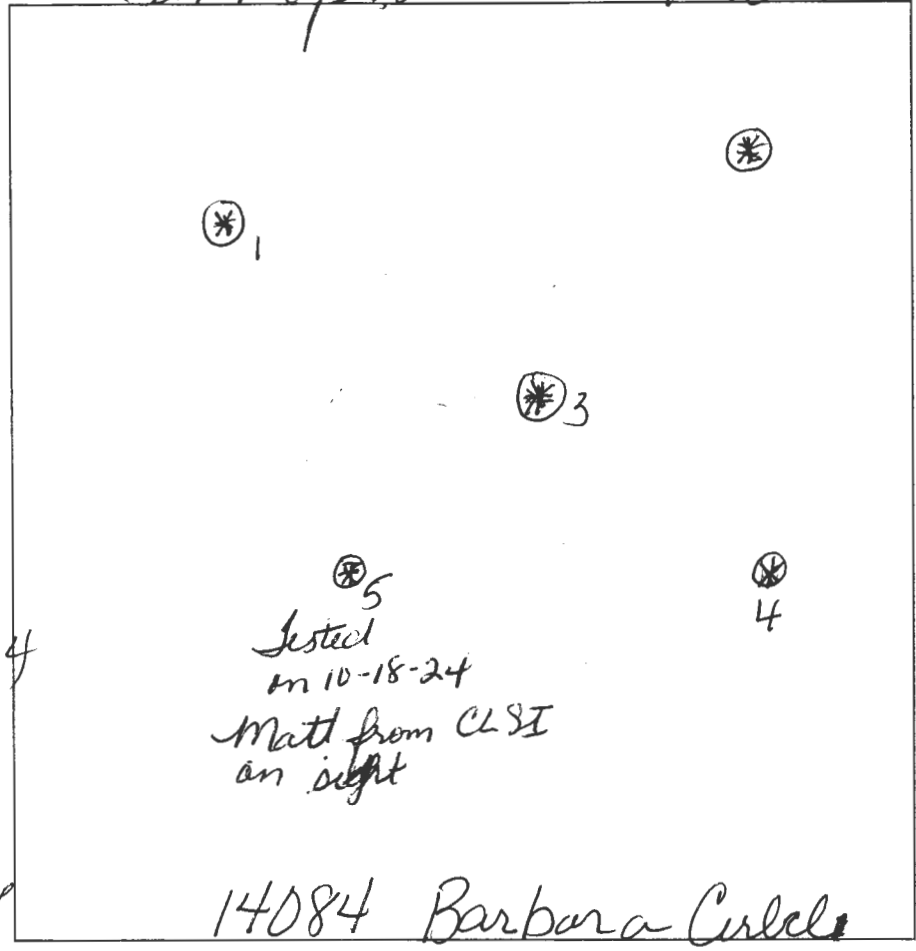 1
3
5
4
Tested
on 10-18-24
4
Matt from CLSI
on sight
14084 Barbara Circle